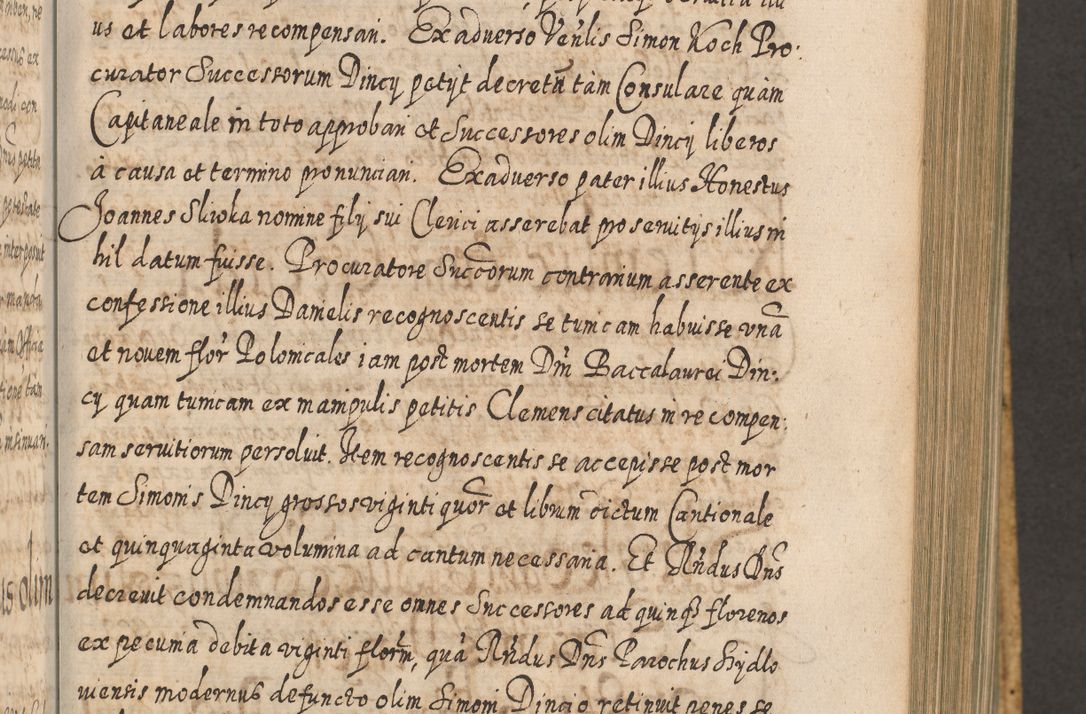 us et labores recompensari. Ex aduerso Ven̄lis Simon Koch Pro:
curator Successorum Dincy petyt decretū tàm Consulare quàm
Capitaneale in toto approbari et Successores olim Dincÿ liberos
à causa et termino pronunciari. Ex aduerso pater illius Honestus
Joannes Sliwka nomine filÿ sui Clerici asserebat pro seruitÿs illius ni
hil datum fuisse. Procuratore Succōrum contrarium asserente ex
confessione illius Danielis recognoscentis se tumcam habuisse vnā
et nouem flor̄ Polonicales iam post mortem Dn̄i Baccalaurei Din:
cy quam tumcam ex manipulis petitis Clemens citatus in recompen:
sam seruitiorum persoluit. Item recognoscentis se accepisse post mor
tem Simonis Dincy grossos viginti quor̄ et librum dictum Cantionale
et quinquaginta volumina ad cantum necessaria. Et Rn̄dus Dn̄s
decreuit condemnandos esse omnes Successores ad quinqȝ florenos
ex pecunia debita viginti flor̄n, quā Rn̄dus Dn̄s Parochus Hÿdlo
uiensis modernus defuncto olim Simoni Dincio retinuit penes se
is olim